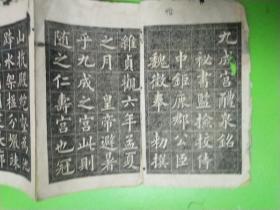 九成宮醴泉銘
秘書監檢校侍
中鉅鹿郡公臣
魏徵奉勑撰
維貞觀六年孟夏
之月皇帝避暑
乎九成之宮此則
隨之仁壽宮也冠
山抗殿絕壑為池
跨水架楹分巖竦